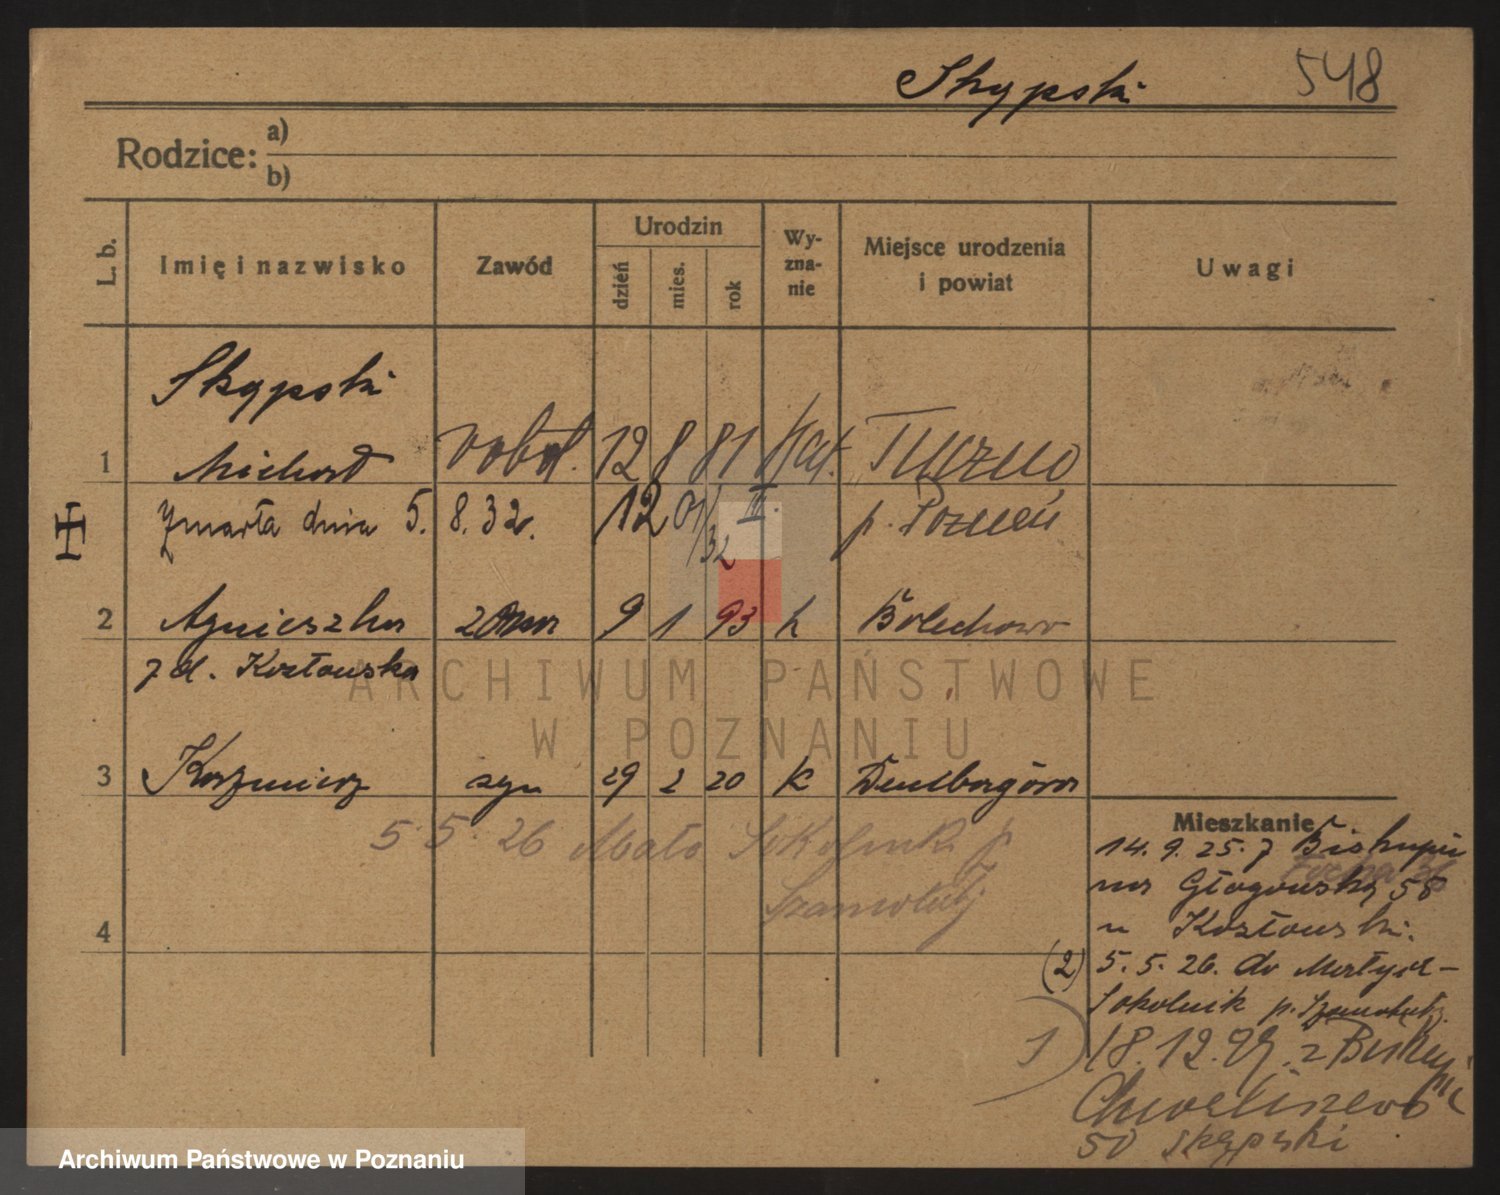 Skąpski 548
Rodzice: a)
b)
L. b. Imię i nazwisko Zawód Urodzin dzień mies. rok Wy-zna-nie Miejsce urodzenia i powiat Uwagi
Skąpski
1 Michał robot. 12 8 81 kat. Tuczno
Zmarła dnia 5. 8. 32. p. Poznań
2 Agnieszka żona 9 1 93 k Bolechowo
z d. Kozłowska
3 Kazimierz syn 29 2 20 k Dembogóra
5. 5. 26 Mało Sokolnik p.
Szamotuły
4
Mieszkanie
14. 9. 25. z Biskupic
na Głogowską 58
u Kozłowski.
(2) 5. 5. 26. do Małych-
Sokolnik p. Szamotuły.
1) 18. 12. z Biskupic
50 Skąpski
ARCHIWUM PAŃSTWOWE
W POZNANIU
Archiwum Państwowe w Poznaniu